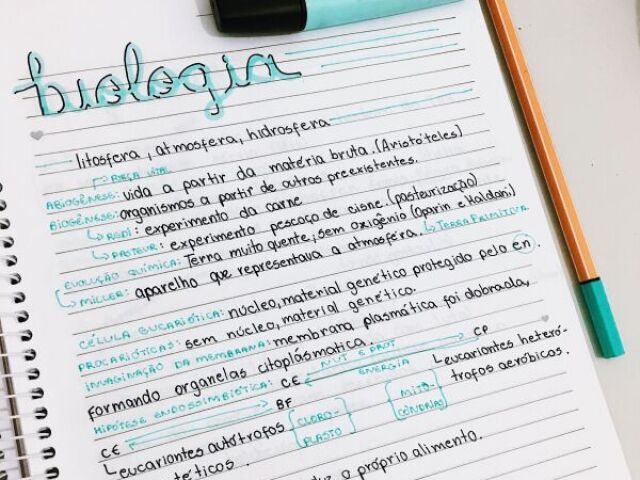 biologia
litosfera, atmosfera, hidrosfera
FORÇA VITAL
ABIOGÊNESE: vida a partir da matéria bruta. (Aristóteles)
BIOGÊNESE: organismos a partir de outros preexistentes.
REDI: experimento da carne
PASTEUR: experimento pescoço de cisne. (pasteurização)
EVOLUÇÃO QUÍMICA: Terra muito quente, sem oxigênio (Oparin e Haldani)
MILLER: aparelho que representava a atmosfera. TERRA PRIMITIVA
CÉLULA EUCARIÓTICA: núcleo, material genético protegido pelo en.
PROCARIÓTICAS: sem núcleo, material genético.
INVAGINAÇÃO DA MEMBRANA: membrana plasmática foi dobrada,
formando organelas citoplásmatica.
HIPÓTESE ENDOSSIMBIÓTICA: CE NUT E PROT CP
ENERGIA
CE BF
Leucariontes heteró-
trofos aeróbicos.
MITO-
CÔNDRIAS
Leucariontes autótrofos CLORO-
PLASTO
téticos.
o próprio alimento.